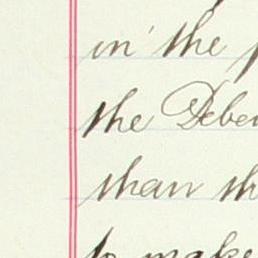 in the
the Deben
than th
to make